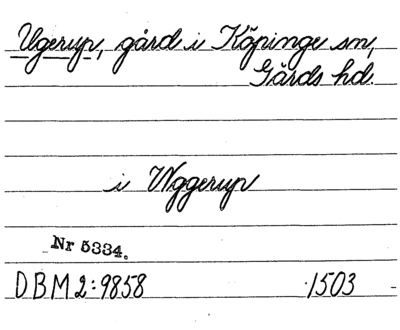 Ugerup, gård i Köpinge sn,
Gärds hd.
i Wggerup
Nr 5334.
DBM 2:9858 1503